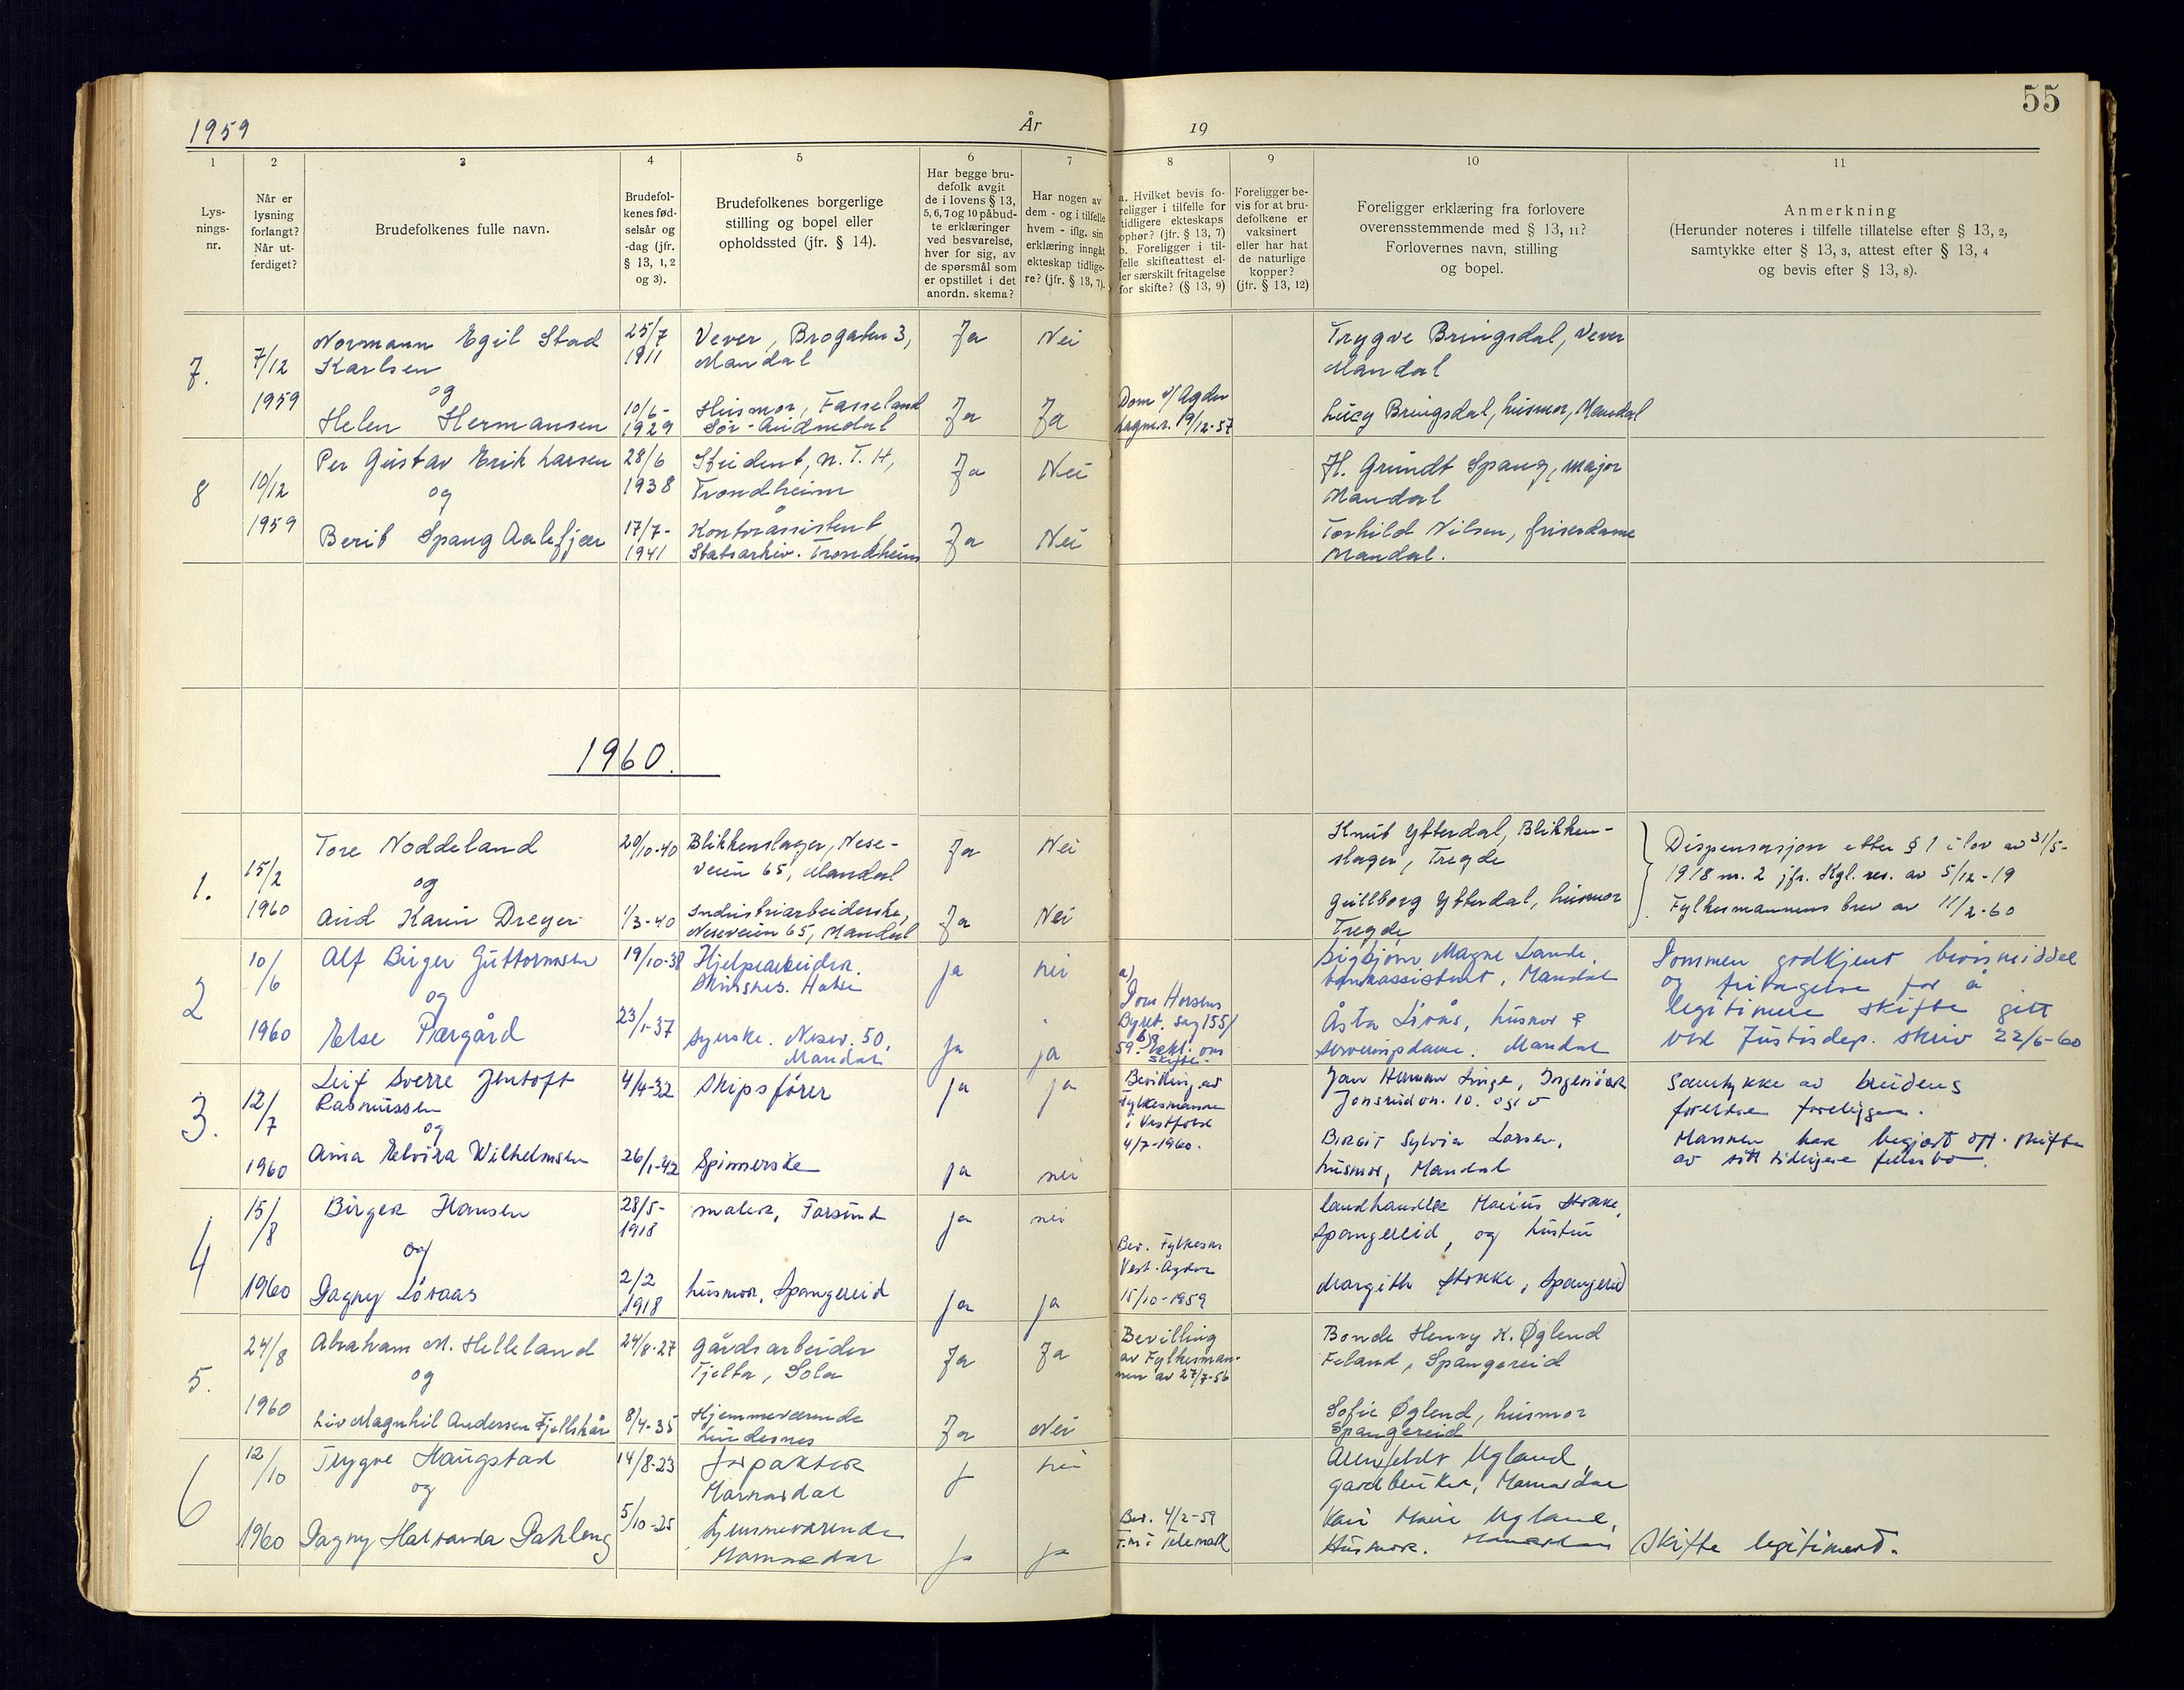 55
1959
År
19
1
2
3
4
5
6
7
8
9
10
11
Lys-
nings-
nr.
Når er
lysning
forlangt?
Når ut-
ferdiget?
Brudefolkenes fulle navn.
Brudefol-
kenes fød-
selsår og
-dag (jfr.
§ 13, 1, 2
og 3).
Brudefolkenes borgerlige
stilling og bopel eller
opholdssted (jfr. § 14).
Har begge bru-
defolk avgit
de i lovens § 13,
5, 6, 7 og 10 påbud-
te erklæringer
ved besvarelse,
hver for sig, av
de spørsmål som
er opstillet i det
anordn. skema?
Har nogen av
dem - og i tilfelle
hvem - iflg. sin
erklæring inngått
ekteskap tidlige-
re? (jfr. § 13, 7).
a. Hvilket bevis fo-
religger i tilfelle for
tidligere ekteskaps
ophør? (jfr. § 13, 7)
b. Foreligger i til-
felle skifteattest el-
ler særskilt fritagelse
for skifte? (§ 13, 9)
Foreligger be-
vis for at bru-
defolkene er
vaksinert
eller har hat
de naturlige
kopper?
(jfr. § 13, 12)
Foreligger erklæring fra forlovere
overensstemmende med § 13, 11?
Forlovernes navn, stilling
og bopel.
Anmerkning
(Herunder noteres i tilfelle tillatelse efter § 13, 2,
samtykke efter § 13, 3, attest efter § 13, 4
og bevis efter § 13, 8).
7.
7/12
1959
Normann Egil Stad
Karlsen
og
Helen Hermansen
25/7
1911
10/6-
1929
Vever, Brogaten 3,
Mandal
Husmor, Fasseland
Sør-Audnedal
Ja
Ja
Nei
Ja
Dom v/ Agder
lagm.r. 19/12-57
Trygve Bringsdal, Vever
Mandal
Lucy Bringsdal, husmor, Mandal
8
10/12
1959
Per Gustav Erik Larsen
og
Berit Spang Aalefjær
28/6
1938
17/7-
1941
Student, N.T.H,
Trondheim
Kontorassistent
Statsarkiv. Trondheim
Ja
Ja
Nei
Nei
H. Grundt Spang, major
Mandal
Torhild Nilsen, friserdame
Mandal.
1960.
1.
15/2
1960
Tore Noddeland
og
Aud Karin Dreyer
20/10-40
1/3-40
Blikkenslager, Nese-
veien 65, Mandal
Industriarbeiderske,
Neseveien 65, Mandal
Ja
Ja
Nei
Nei
Knut Ytterdal, Blikken-
slager, Tregde
Gullborg Ytterdal, husmor
Tregde
Dispensasjon etter § 1 i lov av 31/5-
1918 nr. 2 jfr. Kgl. res. av 5/12-19
Fylkesmannens brev av 11/2-60
2
10/6
1960
Alf Birger Guttormsen
og
Else Pærgård
19/10-38
23/1-37
Hjelpearbeider.
Skinsnes. Halse
Syerske. Nesev. 50,
Mandal
ja
ja
nei
ja
a)
Dom Horsens
Byret. sag 155/
59. b) Erkl. om
skifte.
Sigbjørn Magne Lande,
bankassistent, Mandal
Åsta Livås, husmor &
serveringsdame. Mandal
Dommen godkjent bevismiddel
og fritagelse for å
legitimere skifte gitt
ved Justisdep. skriv 22/6-60
3.
12/7
1960
Leif Sverre Jentoft
Rasmussen
og
Anna Elvira Wilhelmsen
4/4-32
26/1-42
Skipsfører
Spinnerske
ja
ja
ja
nei
Bevilling av
Fylkesmannen
i Vestfold
4/7-1960.
Jan Herman Linge, Ingeniør
Jonsrudvn. 10. Oslo
Birgit Sylvia Larsen,
husmor, Mandal
Samtykke av brudens
foreldre foreligger.
Mannen har begjært off. skifte
av sitt tidligere fellesbo.
4
15/8
1960
Birger Hansen
og
Dagny Løvaas
28/5-
1918
2/2
1918
maler, Farsund
husmor, Spangereid
ja
ja
nei
ja
Bev. Fylkesm
Vest-Agder
15/10-1959
Landhandler Marius Stokke,
Spangereid, og hustru
Margith Stokke, Spangereid
5.
24/8
1960
Abraham M. Helleland
og
Liv Magnhil Andersen Fjellskår
24/8-27
8/4-35
Gårdsarbeider
Tjelta, Sola
Hjemmeværende
Lindesnes
Ja
Ja
Ja
Nei
Bevilling
av Fylkesman-
nen av 27/7-56
Bonde Henry K. Øglend
Feland, Spangereid
Sofie Øglend, husmor
Spangereid
6
12/10
1960
Trygve Haugstad
og
Dagny Halvarda Dahleng
14/8-23
5/10-25
forpakter
Marnardal
Hjemmeværende
Marnardal
J
Ja
nei
ja
Bev. 4/2-59
F.m i Telemark
Arenfeldt Ugland,
gardbruker, Marnardal
Kari Marie Ugland,
Husmor. Marnardal
Skifte legitimert.